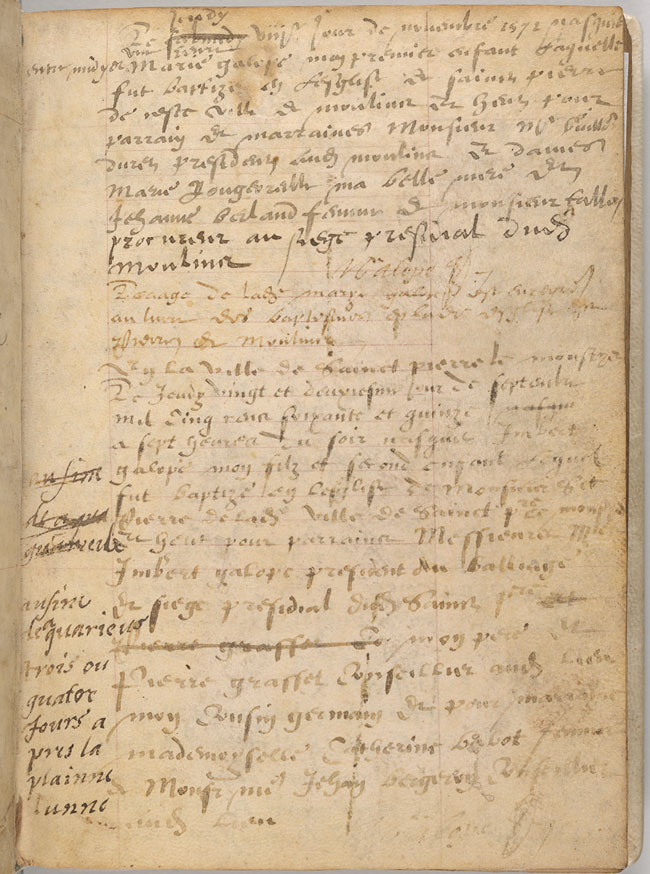 Jeudy
Le samedy viij^e jour de novembre 1572 nasquit
Marie galope mon premier enfant laquelle
fut baptize en lesglise de sainct pierre
de ceste ville de moulins et heut pour
parrain et marraines Monsieur M^e
duret president aud moulins et dames
Marie Rougerelle ma belle mere et
Jehanne berland femme de monsieur
procureur au siege presidial dud
Moulins
de lad marye galope
au livre des baptesmes de lad esglise
pierre de Moulins
En la ville de Sainct pierre le monstier
Le Jeudy vingt et deuxiesme jour de septembre
mil cinq cens soixante et quinze
a sept heures du soir nasquit Imbert
galope mon filz et second enfant lequel
fut baptize en lesglise de Monsieur Sct
pierre de lad ville de Sainct p^re le monstier
et heut pour parrains Messieurs M^e
Imbert galope president au balliage
et siege presidial dud Sainct p^re et
pierre grasset mon pere et
Pierre grasset Conseiller aud lieu
mon Cousin germain et pour marraine
mademoyselle Catherine bobot femme
de Mons^r m^e Jehan bergeron Conseiller
aud lieu
ansine
ansine
le quarieus
trois ou
quatre
Jours a
pres la
plainne
lunne